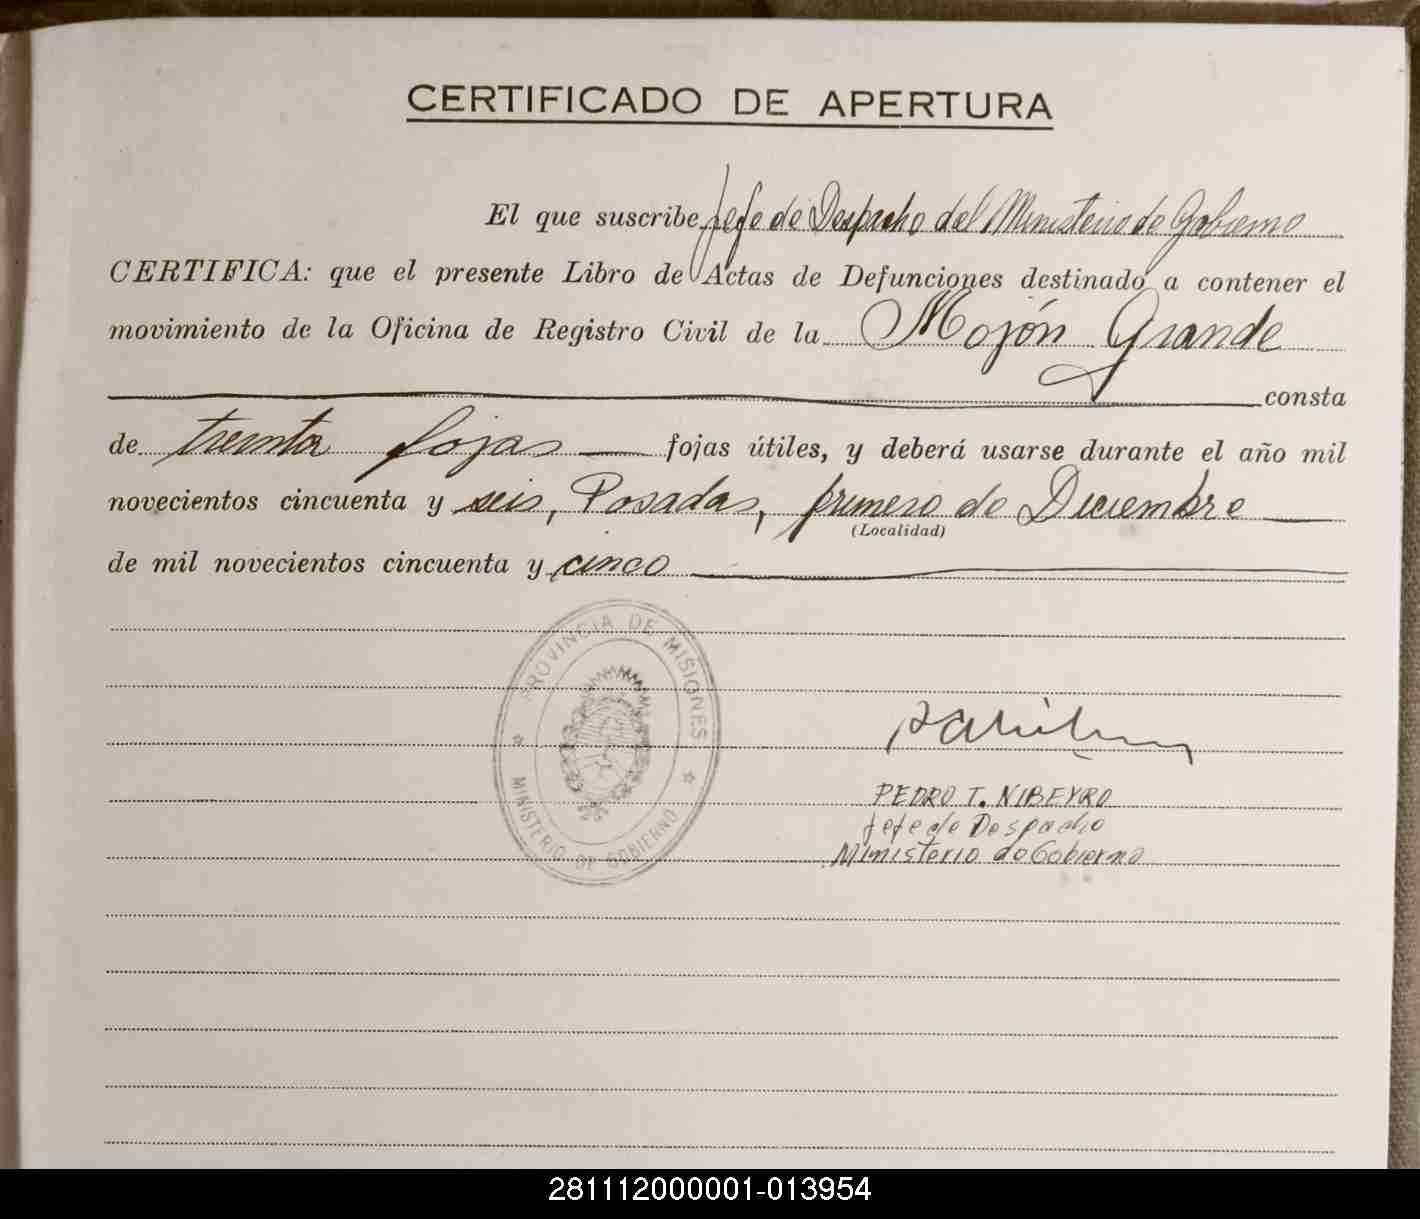 CERTIFICADO DE APERTURA
El que suscribe Jefe de Despacho del Ministerio de Gobierno
CERTIFICA: que el presente Libro de Actas de Defunciones destinado a contener el
movimiento de la Oficina de Registro Civil de la Mojón Grande
consta
de treinta fojas fojas útiles, y deberá usarse durante el año mil
novecientos cincuenta y seis, Posadas, primero de Diciembre
(Localidad)
de mil novecientos cincuenta y cinco
PROVINCIA DE MISIONES
MINISTERIO DE GOBIERNO
PEDRO T. NIBEYRO
Jefe de Despacho
Ministerio de Gobierno
281112000001-013954